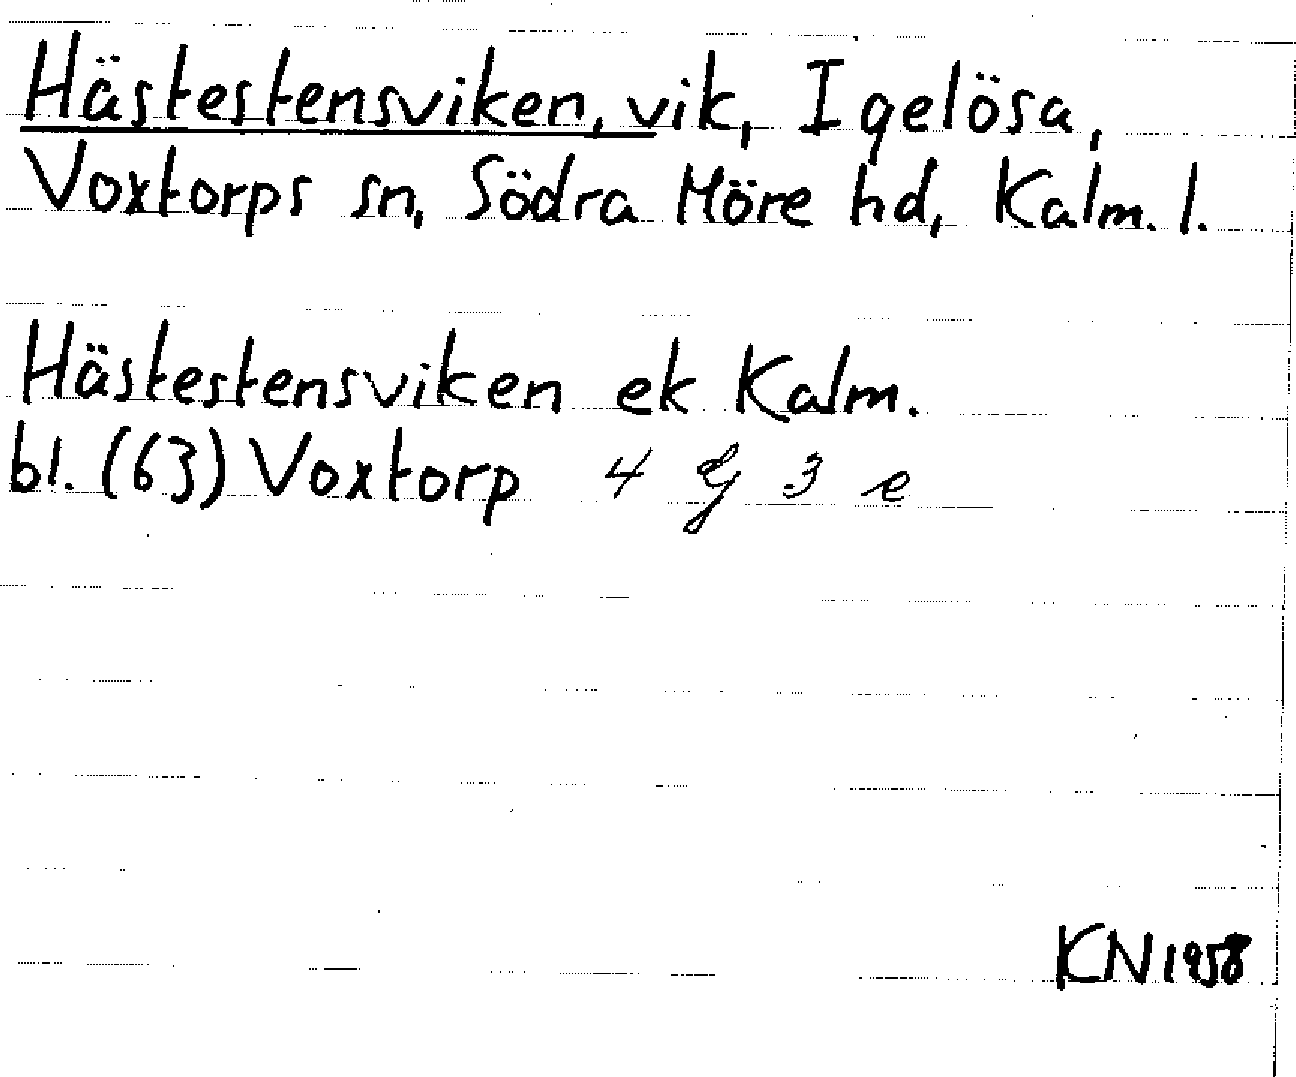 Hästestensviken, vik, Igelösa,
Voxtorps sn, Södra Möre hd, Kalm. l.
Hästestensviken ek Kalm.
bl. (63) Voxtorp 4 G 3 e
KN 1958